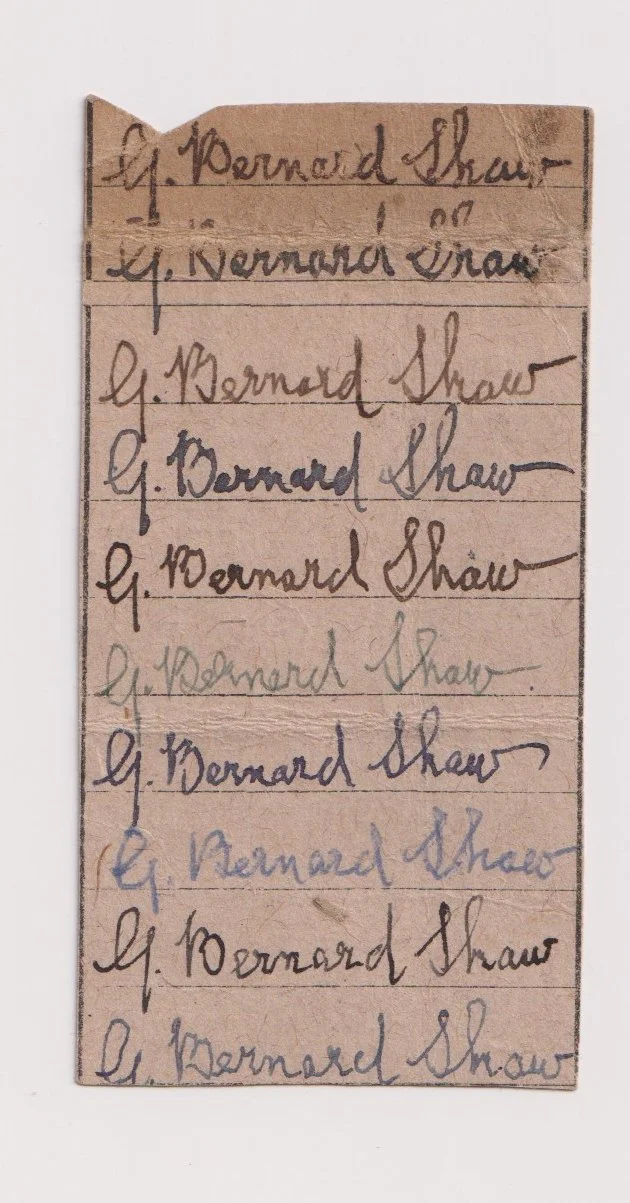 G. Bernard Shaw
G. Bernard Shaw
G. Bernard Shaw
G. Bernard Shaw
G. Bernard Shaw
G. Bernard Shaw
G. Bernard Shaw
G. Bernard Shaw
G. Bernard Shaw
G. Bernard Shaw